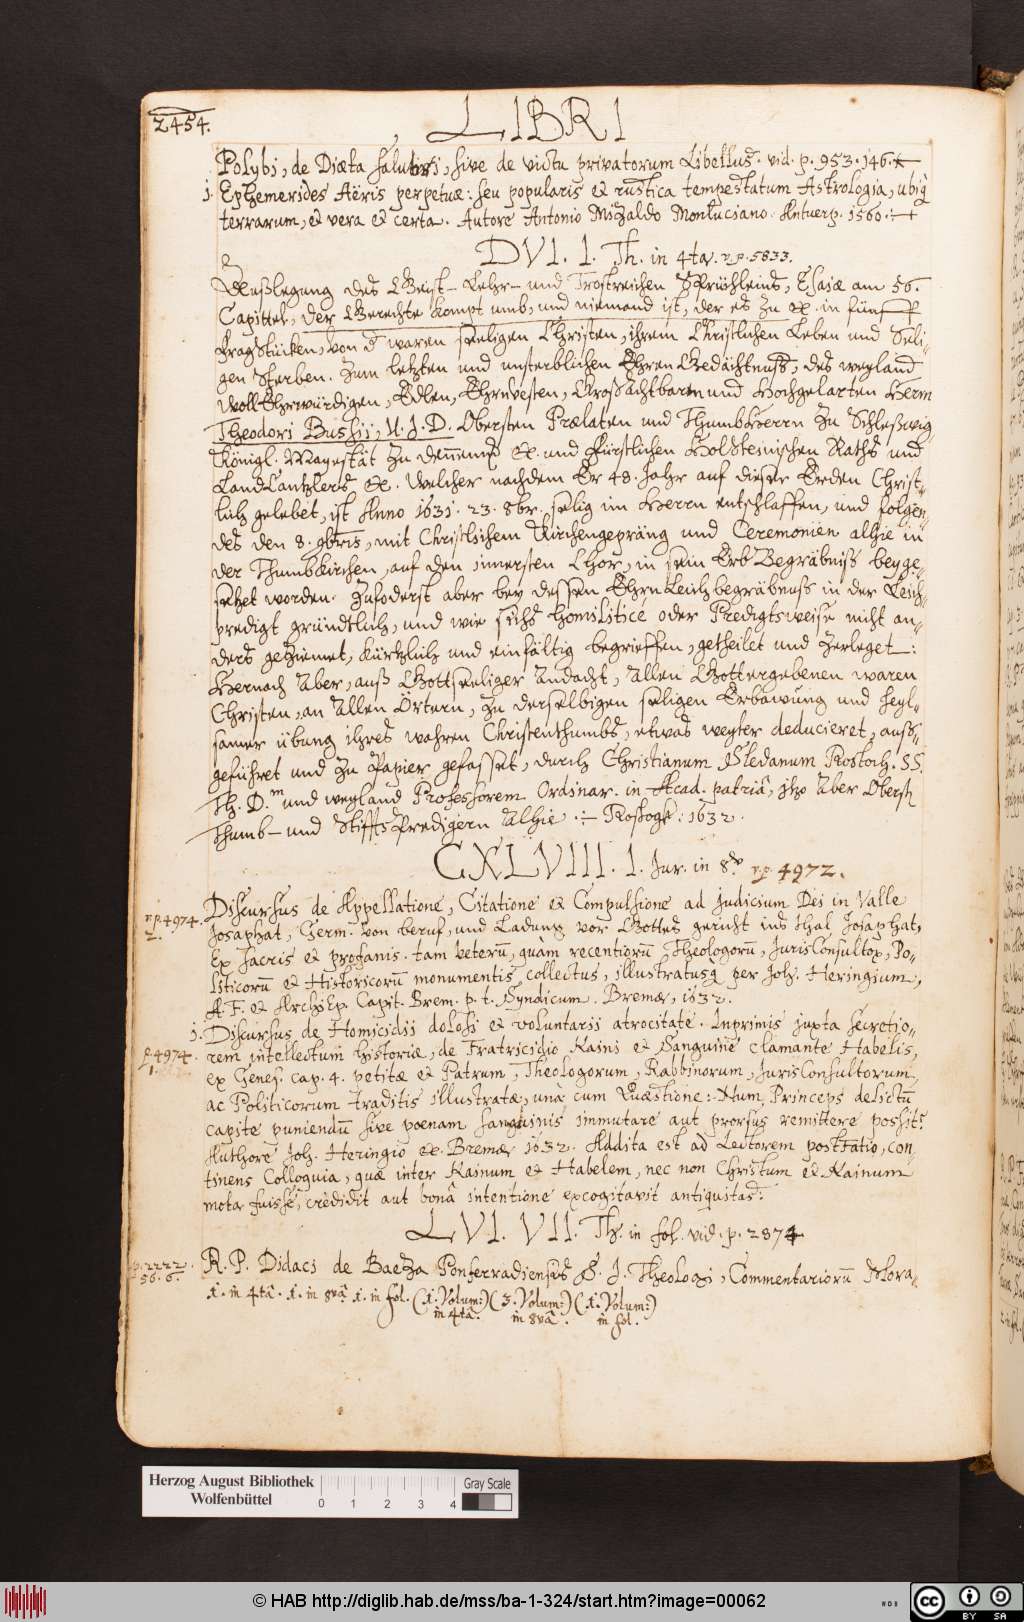 2454.
LIBRI
Polybi, de Diæta salubri, sive de victu privatorum Libellus. vid. p. 953. 146.
1. Ephemerides Aëris perpetuæ: seu popularis et rustica tempestatum Astrologia, ubiq
terrarum, et vera et certa. Autore Antonio Mizaldo Monluciano. Antuerp. 1560.
DVI. 1. Th. in 4ta. p. 5833.
Außlegung des Geist- Lehr- und Trostreichen Sprüchleins, Esaiæ am 56.
Capittel, Der Gerechte kompt umb, und niemand ist, der es zu etc. in fünff
Fragstücken, von der waren seeligen Christen, ihrem Christlichen Leben und Seli-
gen Sterben. Zum letzten und unsterblichen Ehren Gedächtnuß, des weyland
WollEhrwürdigen, Edlen, Ehrnvesten, Großachtbaren und Hochgelarten Herrn
Theodori Bussii, U. J. D. Obersten Prælaten und Thumbherrn zu Schleßwig
Königl. Mayestät zu Dennemk etc. und Fürstlichen Holsteinischen Raths und
LandCantzlers etc. Welcher nachdem Er 48. Jahr auf dieser Erden Christ-
lich gelebet, ist Anno 1631. 23. 8br. selig im Herrn entschlaffen, und folgen-
des den 8. 9bris, mit Christlichem Kirchengepräng und Ceremonien alhie in
der Thumbkirchen, auf den innersten Chor, in sein ErbBegräbniß beyge-
setzet worden. Zufoderst aber bey dessen Ehrn Leichbegräbnuß in der Leich-
predigt gründtlich, und wie sichs homilitice oder Predigtsweise nicht an-
ders geziemet, kürtzlich und einfältig begrieffen, getheilet und zerleget:
Hernach Aber, auß Gottseeliger Andacht, Allen Gottergebenen waren
Christen, an Allen Örtern, zu derselbigen seligen Erbawung und heyl-
samer übung ihres wahren Christenthumbs, etwas weyter deducieret, auß-
geführet und zu Papier gefasset, durch Christianum Sledanum Rostoch. SS.
Th. D.m und weyland Professorem Ordinar. in Acad. patriâ, itzo Aber Oberst
Thumb- und StifftsPredigern Alhie. Rostogk: 1632.
CXLVIII. 1. Jur. in 8vo p. 4972.
p. 4974.
2.
Discursus de Appellatione, Citatione et Compulsione ad judicium Dei in Valle
Josaphat, Germ. Von beruf, und Ladung vor Gottes gericht ins thal Josaphat,
Ex sacris et profanis. tam veterū, quàm recentiorū, Theologorū, JurisConsultor, Po-
liticorū et Historicorū monumentis collectus, illustratusq per Joh. Heringium,
A. F. et ArchiEp. Capit. Brem. p. t. Syndicum. Bremæ, 1632.
1. Discursus de Homicidii dolosi et voluntarii atrocitate. Inprimis juxta secretio-
p. 4974.
1.
rem intellectum historiæ, de Fratricidio Kaini et Sanguine clamante Habelis,
ex Genes. cap. 4. petitæ et Patrum, Theologorum, Rabbinorum, JurisConsultorum
ac Politicorum traditis illustratæ, unà cum Quæstione: Num Princeps delictū
capite puniendū sive poenam sanguinis immutare aut prorsus remittere possit?
Authore Joh. Heringio etc. Bremæ 1632. Addita est ad Lectorem postfatio, con
tinens Colloquia, quæ inter Kainum et Habelem, nec non Christum et Kainum
mota fuisse, credidit aut bonâ intentione excogitavit antiquitas.
LVI. VII. Th. in fol. vid. p. 2874
p. 2222.
56. 6.
R. P. Didaci de Baeza Ponferradiensis S. J. Theologi, Commentariorū Mora-
1. in 4tâ. 1. in 8vâ 1. in fol. (1. Volum:) (3. Volum:) (1. Volum:)
in 4tâ. in 8vâ. in fol.
Herzog August Bibliothek
Wolfenbüttel
0 1 2 3 4
Gray Scale
© HAB http://diglib.hab.de/mss/ba-1-324/start.htm?image=00062
cc BY SA